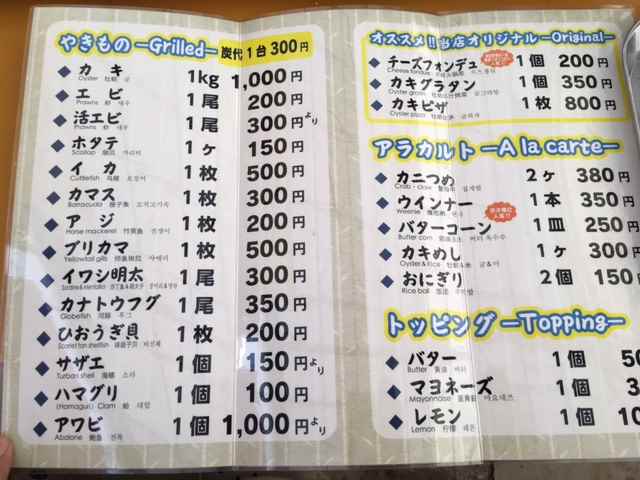 やきもの -Grilled- 炭代 1台 300円
カキ 1kg 1,000円
Oyster 牡蛎 굴
エビ 1尾 200円
Prawns 虾 새우
活エビ 1尾 300円より
Prawns 虾 새우
ホタテ 1ヶ 150円
Scallop 가리비
イカ 1枚 500円
Cuttlefish 오징어
カマス 1枚 300円
Barracuda 梭子鱼
アジ 1枚 200円
Horse mackerel 竹荚鱼 전갱이
ブリカマ 1枚 500円
Yellowtail gills
イワシ明太 1尾 300円
カナトウフグ 1尾 350円
Globefish 河豚 복어
ひおうぎ貝 1枚 200円
サザエ 1個 150円より
Turban shell 海螺 소라
ハマグリ 1個 100円
(Hamaguri) Clam 蛤 대합
アワビ 1個 1,000円より
Abalone 鲍鱼 전복
オススメ!!当店オリジナル -Original-
チーズフォンデュ 1個 200円
Cheese fondue
カキグラタン 1個 350円
Oyster gratin
カキピザ 1枚 800円
Oyster pizza
アラカルト -A la carte-
カニつめ 2ヶ 380円
Crab・claw
ウインナー 1本 350円
Weenie
バターコーン 1皿 250円
Butter corn
カキめし 1ヶ 300円
Oyster&Rice
おにぎり 2個 150
Rice ball
トッピング -Topping-
バター 1個
Butter 黄油 버터
マヨネーズ 1個
Mayonnaise 마요네즈
レモン 1個
Lemon 柠檬 레몬